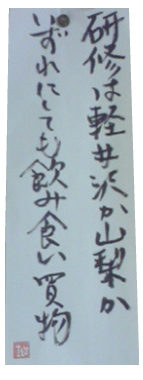 研修は軽井沢か山梨か
いずれにしても飲み食い買物